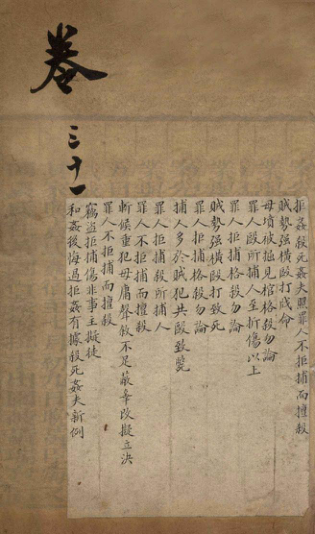 卷
三十一
拒姦殺死姦夫照罪人不拒捕而擅殺
賊勢强橫毆打戕命
母墳被掘見棺格殺勿論
罪人毆所捕人至折傷以上
罪人拒捕格殺勿論
賊勢强橫毆打致死
罪人拒捕格殺勿論
捕人多於賊犯共毆致斃
罪人拒捕殺所捕人
罪人不拒捕而擅殺
斬候重犯毋庸聲敘不足蔽辜改擬立決
罪人不拒捕而擅殺
竊盜拒捕傷非事主擬徒
和姦後悔過拒姦有據殺死姦夫新例